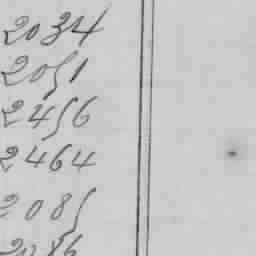 2034
2051
2456
2464
2085
2086